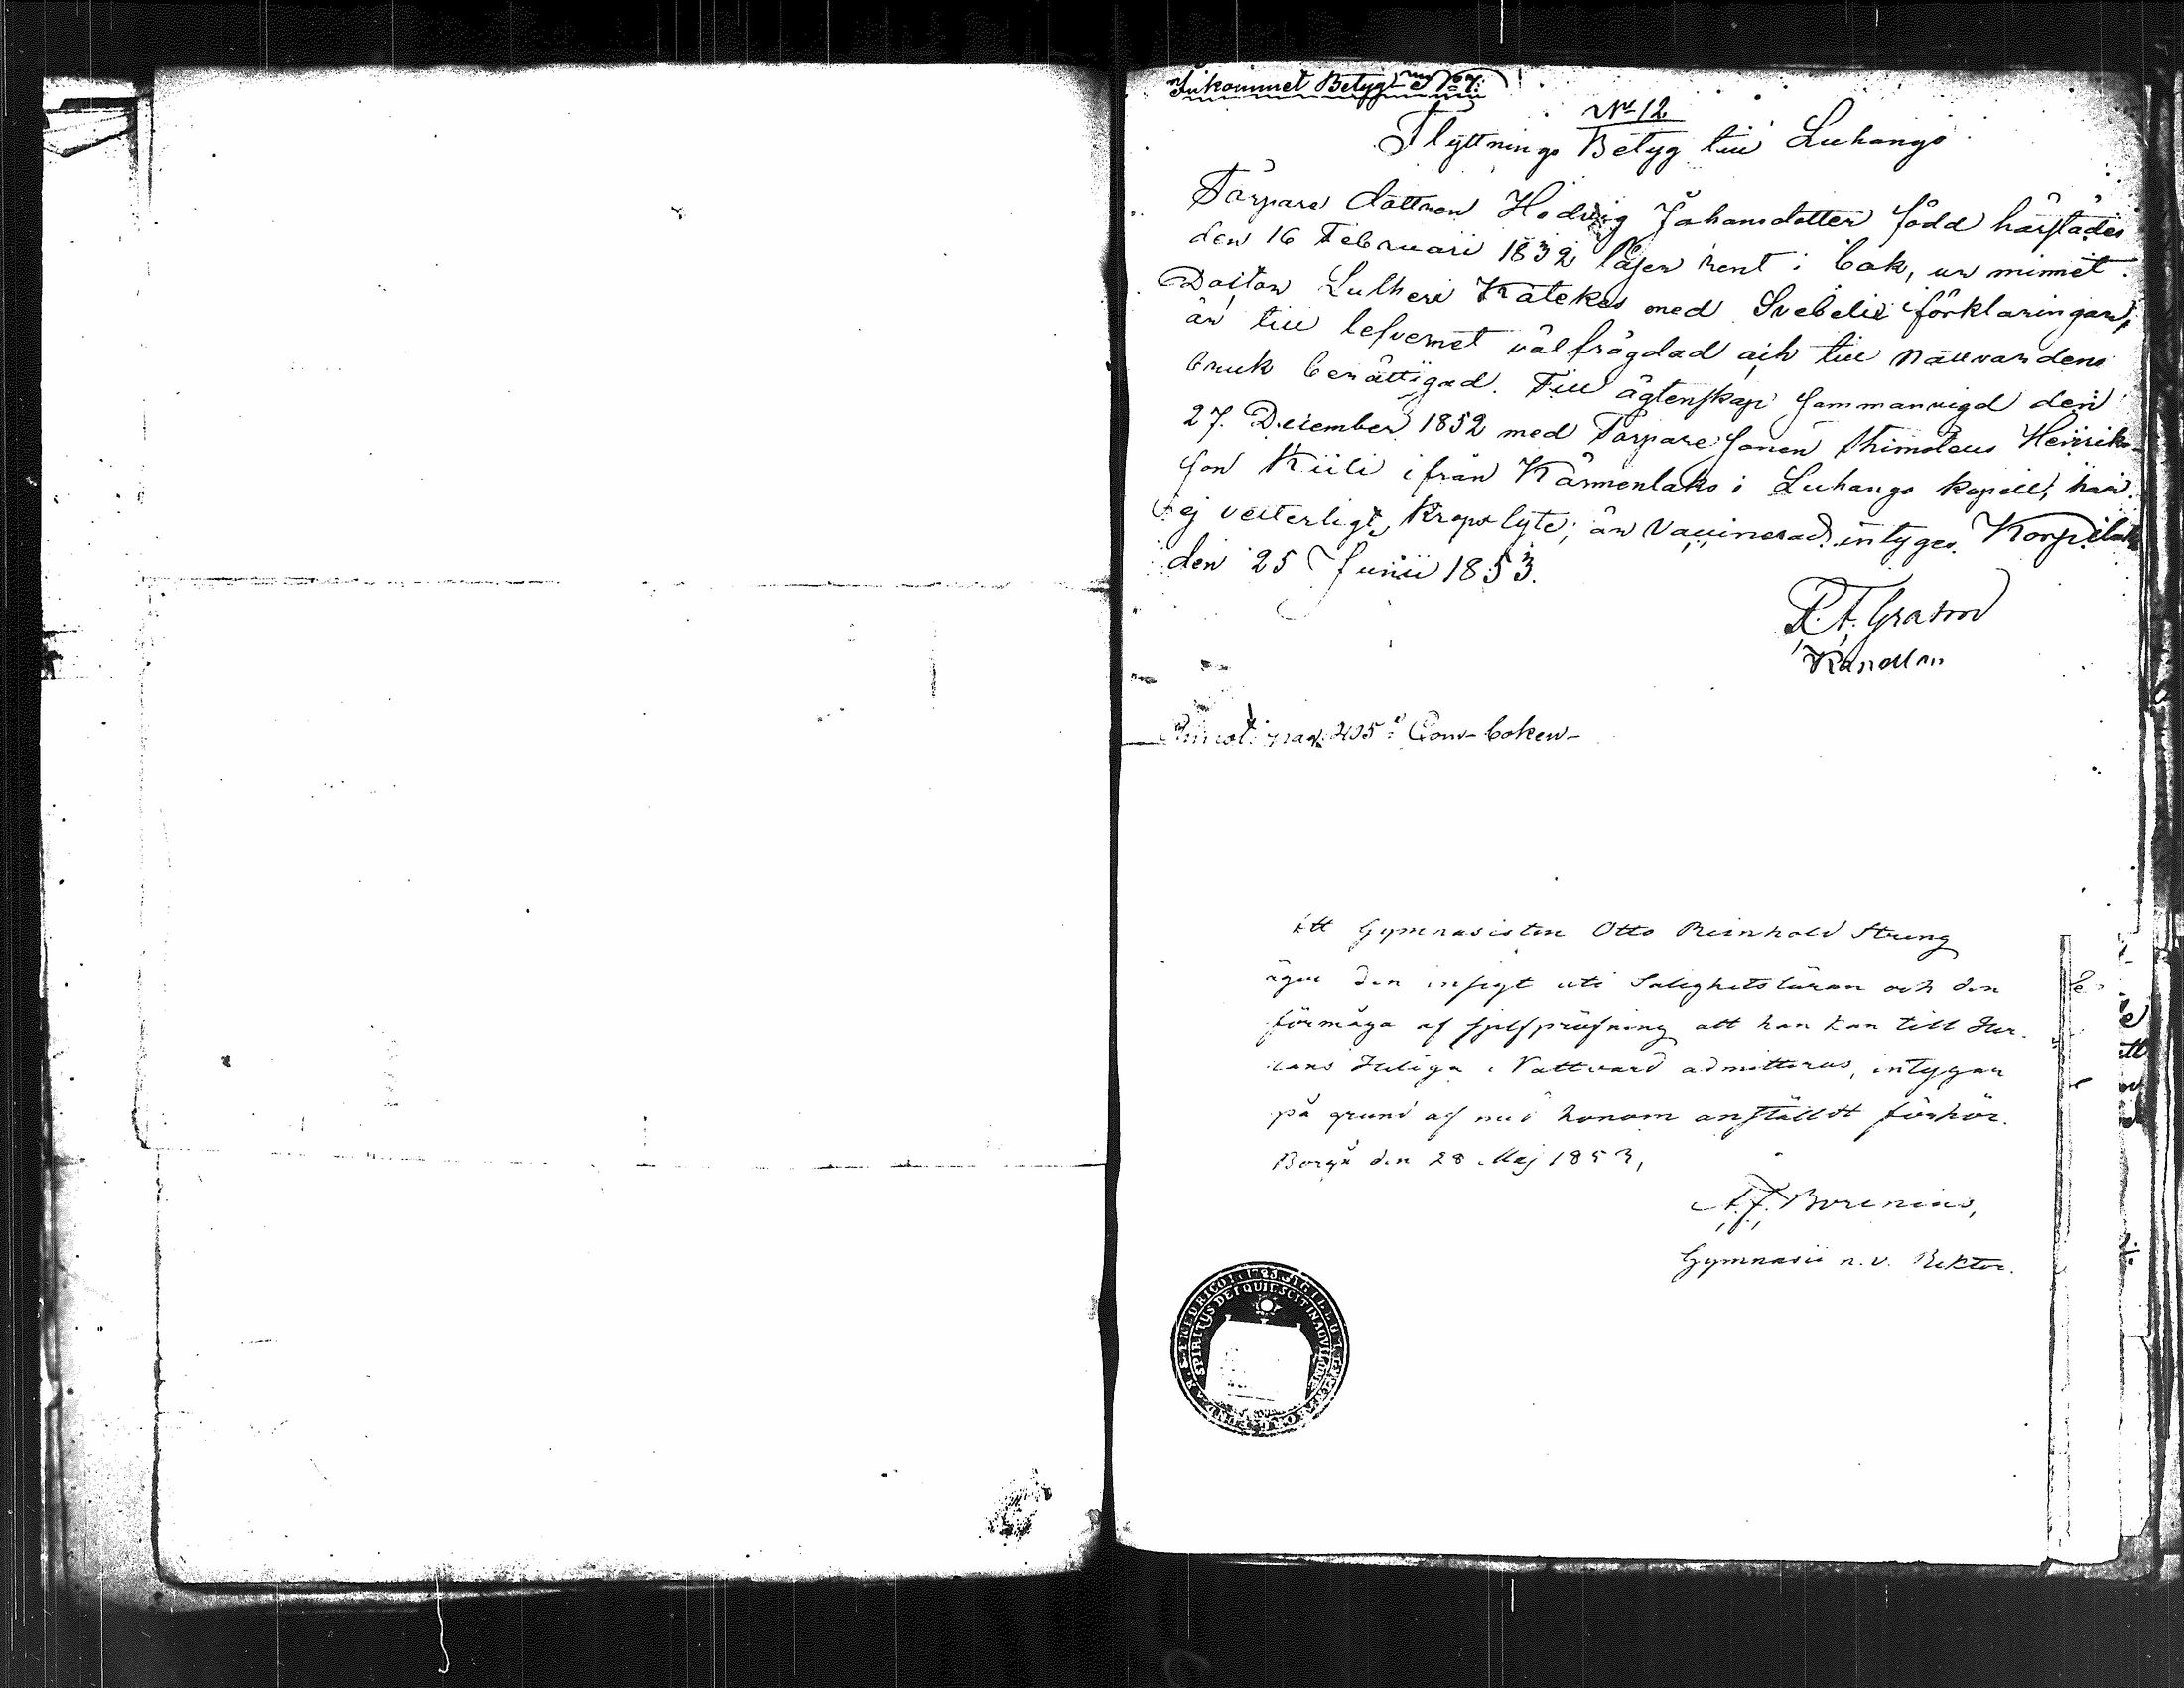 Inkommet Betygt
No 12
Flyttnings Betyg till Luhango
Torpare dottren Hedvig Johansdotter född härstädes
den 16 Februari 1832 läser rent i bok, ur minnet
Doctor Lutheri Katekes med Svebelii förklaringar,
är till lefvernet välfrägdad och till Nattvardens
bruk berättigad. Till ägtenskap sammanvigd den
27. December 1852 med Torpare sonen Thimoteus Henrik-
son Kiili ifrån Kärmenlaks i Luhango kapell, har
ej vetterligt, kropslyte; är Vaccinerad, intygas. Korpilaks
den 25 Junii 1853.
R. F. Grahn
pag. 405 Com-boken-
Att Gymnasisten Otto Reinhold Streng
äger den insigt uti Salighetsläran och den
förmåga af sjelfpröfning att han kan till Her-
rans Heliga Nattvard admitteras, intygar
på grund af med honom anställdt förhör.
Borgå den 28 Maj 1853,
A. F. Borenius,
Gymnasii n. v. Rektor.
SPIRITUS DEI QUIESCIT IN AQUILONE